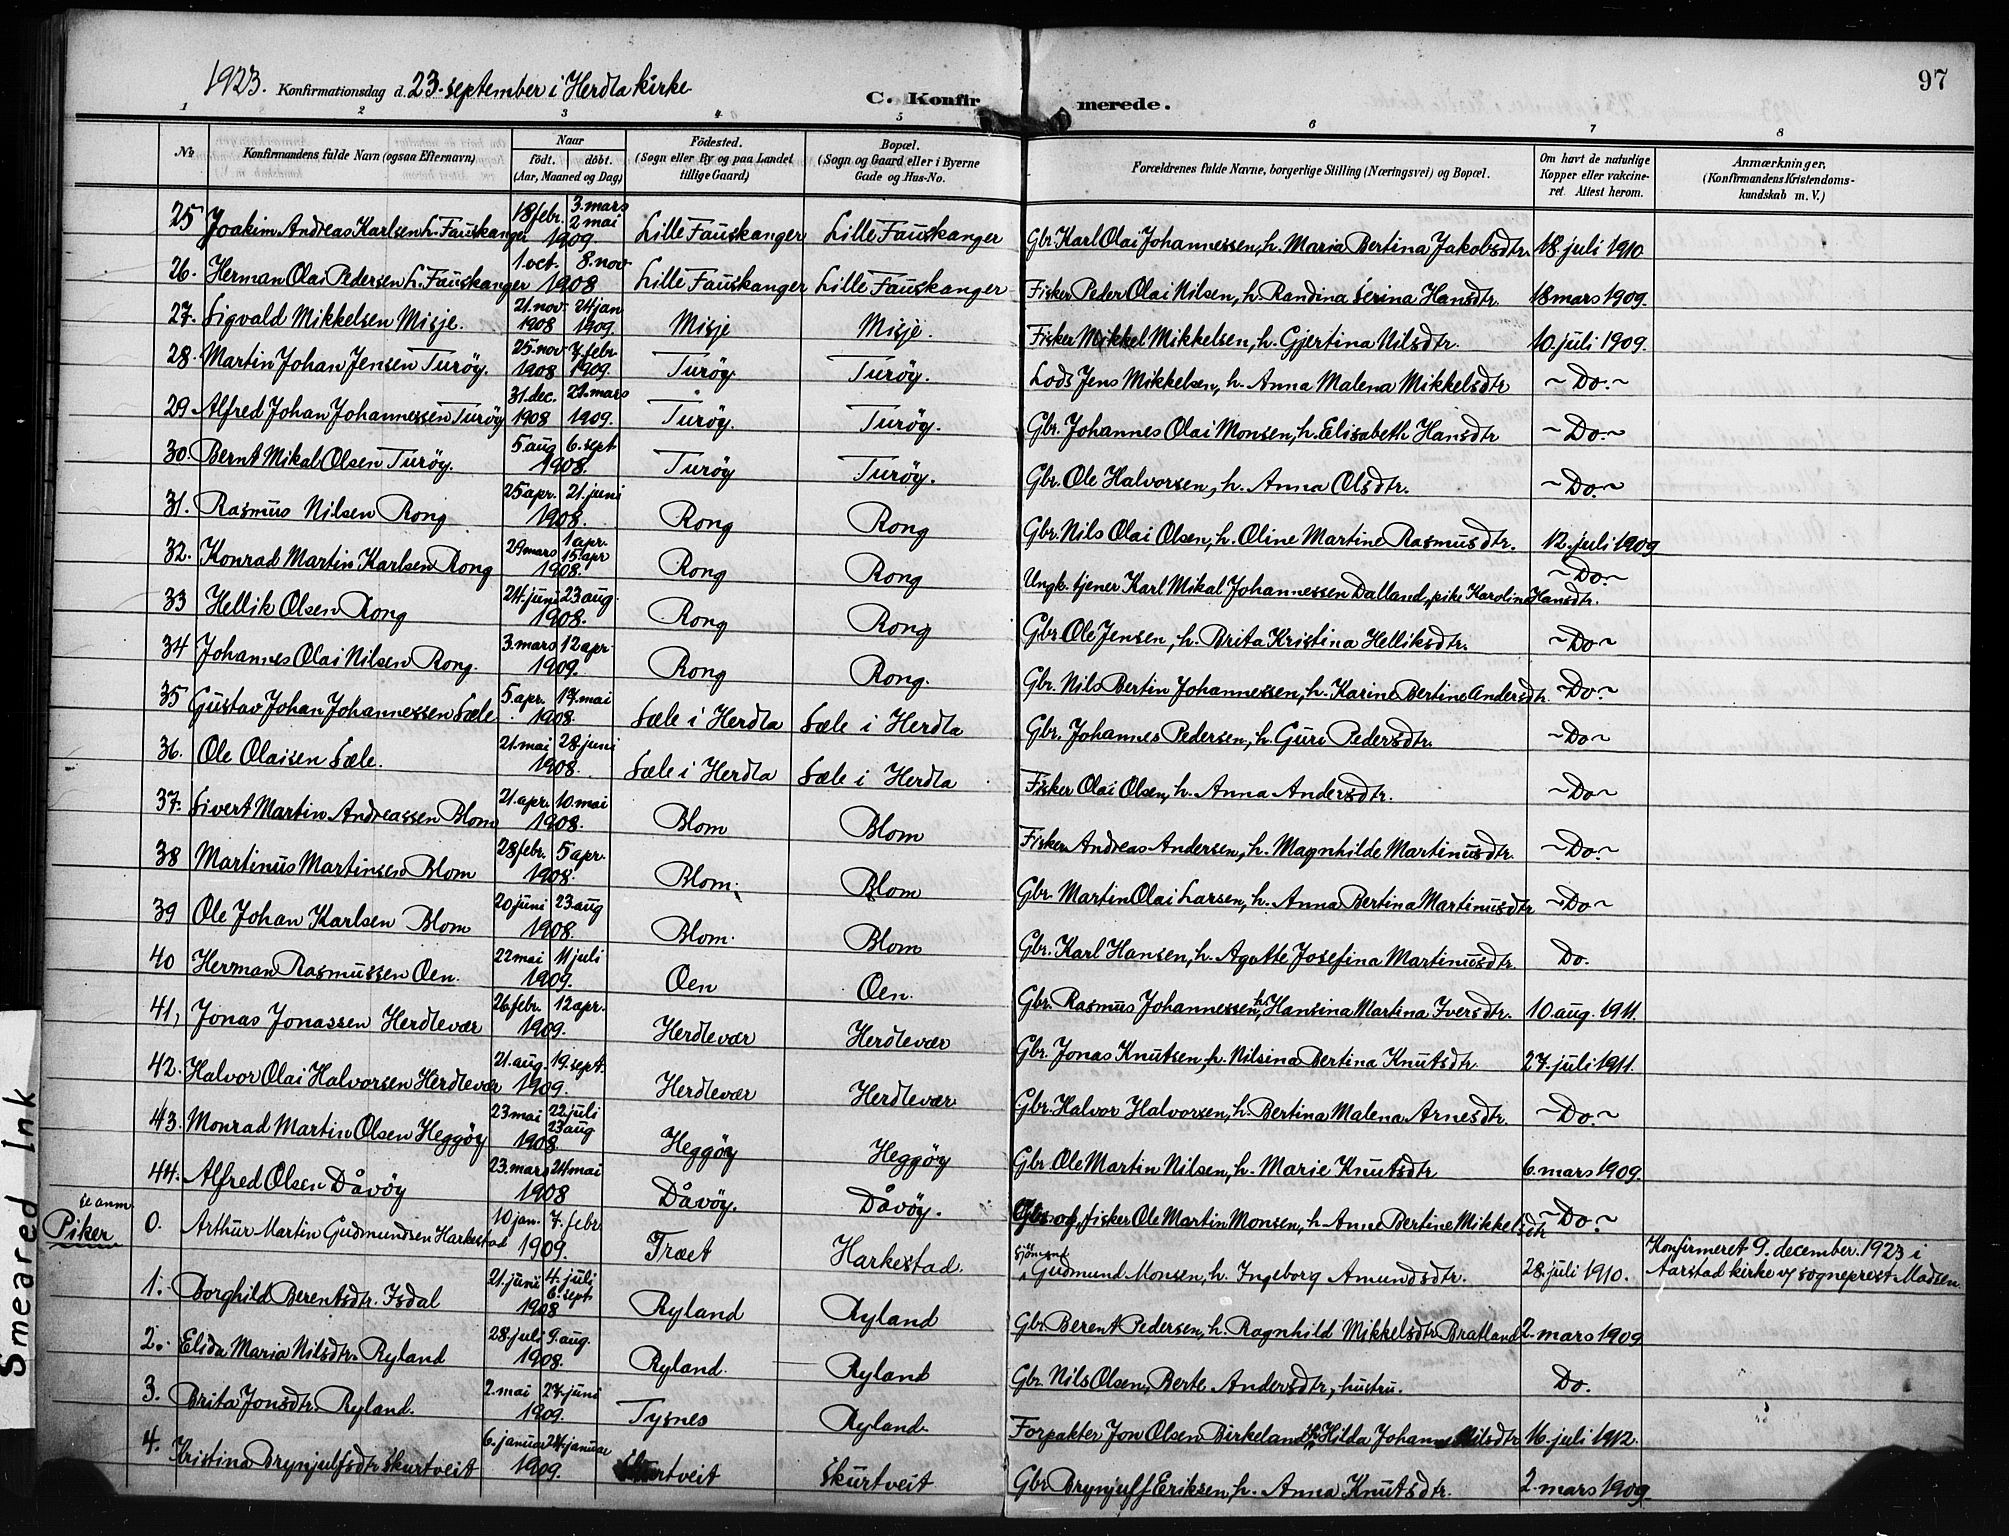 97
1923. Konfirmationsdag d. 23. september i Herdla kirke
C. Konfirmerede.
1 2 3 4 5 6 7 8
№ Konfirmandens fulde Navn (ogsaa Efternavn) Naar født. døbt. (Aar, Maaned og Dag) Fødested. (Sogn eller By og paa Landet tillige Gaard) Bopæl. (Sogn og Gaard eller i Byerne Gade og Hus-No. Forældrenes fulde Navne, borgerlige Stilling (Næringsvei) og Bopæl. Om havt de naturlige Kopper eller vakcineret. Attest herom. Anmærkninger, (Konfirmandens Kristendomskundskab m. V.)
25 Joakim Andreas Karlsen L. Fauskanger 18 febr. 3. mars 2 mai 1909. Lille Fauskanger Lille Fauskanger Gbr. Karl Olai Johannessen, h. Maria Bertina Jakobsdtr. 18. juli 1910.
26. Herman Olai Pedersen L. Fauskanger 1. oct. 8. nov 1908 Lille Fauskanger Lille Fauskanger Fisker Peder Olai Nilsen, h. Randina Serina Hansdtr. 18 mars 1909.
27. Sigvald Mikkelsen Misje. 21. nov. 1908 24 jan 1909. Misje Misje. Fisker Mikkel Mikkelsen, h. Gjertina Nilsdtr. 10. juli 1909.
28. Martin Johan Jensen Turøy. 25. nov 1908 7. febr. 1909. Turøy. Turøy. Lods Jens Mikkelsen, h. Anna Malena Mikkelsdtr ~ Do. ~
29. Alfred Johan Johannessen Turøy 31. dec. 1908 21. mars 1909. Turøy. Turøy. Gbr. Johannes Olai Monsen, h. Elisabeth Hansdtr ~ Do. ~
30. Bernt Mikal Olsen Turøy. 5 aug 6. sept 1908. Turøy Turøy. Gbr. Ole Halvorsen, h. Anna Olsdtr. ~ Do. ~
31. Rasmus Nilsen Rong 25 apr. 21. juni 1908. Rong Rong Gbr. Nils Olai Olsen, h. Oline Martine Rasmusdtr. 12. juli 1909
32. Konrad Martin Karlsen Rong 29 mars 1 apr. 15. apr 1908. Rong Rong Ungk. tjener Karl Mikal Johannessen Dalland, pike Karolina Hansdtr. ~ Do. ~
33 Hellik Olsen Rong 24. juni 23 aug. 1908. Rong Rong Gbr. Ole Jensen, h. Brita Kristina Helliksdtr. ~ Do ~
34 Johannes Olai Nilsen Rong. 3. mars 12 apr. 1909. Rong Rong. Gbr. Nils Bertin Johannessen, h. Karine Bertine Andersdtr. ~ Do. ~
35 Gustav Johan Johannessen Sæle 5 apr. 17. mai 1908. Sæle i Herdla Sæle i Herdla Gbr. Johannes Pedersen, h. Guri Pedersdtr. ~ Do ~
36. Ole Olaisen Sæle. 21. mai 28. juni 1908. Sæle i Herdla Sæle i Herdla Fisker Olai Olsen, h. Anna Andersdtr. ~ Do ~
37. Sivert Martin Andreassen Blom 21. apr. 10. mai 1908. Blom Blom Fisker Andreas Andersen, h. Magnhilde Martinusdtr. ~ Do. ~
38 Martinus Martinsen Blom 28 febr. 5 apr. 1908. Blom. Blom Gbr. Martin Olai Larsen, h. Anna Bertina Martinusdtr ~ Do ~
39 Ole Johan Karlsen Blom 20 juni 23 aug 1908. Blom. Blom Gbr. Karl Hansen, h. Agatte Josefina Martinusdtr. Do.
40 Herman Rasmussen Oen. 22 mai 11 juli 1909. Oen Oen. Gbr. Rasmus Johannessen, h. Hansina Martina Iversdtr. 10 aug. 1911.
41, Jonas Jonassen Herdlevær 26 febr. 12 apr. 1909. Herdlevær Herdlevær Gbr. Jonas Knutsen, h. Nilsina Bertina Knutsdtr. 27. juli 1911.
42. Halvor Olai Halvorsen Herdlevær 21. aug. 19. sept. 1909. Herdlevær Herdlevær Gbr. Halvor Halvorsen, h. Bertina Malena Arnesdtr. ~ Do. ~
43. Monrad Martin Olsen Heggøy 23 mai 22 juli 23 aug 1908 Heggøy Heggøy Gbr. Ole Martin Nilsen, h. Marie Knutsdtr 6. mars 1909.
44. Alfred Olsen Dåvøy 23. mars 24 mai 1908 Dåvøy. Dåvøy. Gbr. og fisker Ole Martin Monsen, h. Anne Bertine Mikkelsdtr ~ Do. ~
se anm. 0. Arthur Martin Gudmundsen Harkestad 10 jan. 7. febr 1909. Træet Harkestad. sjömand Gudmund Monsen, h. Ingeborg Amundsdtr. 28. juli 1910. Konfirmeret 9. december. 1923 i Aarstad kirke v/ sogneprest Madsen
Piker
1. Borghild Berentsdtr. Isdal 21. juni 4. juli 6. sept 1908 Ryland Ryland Gbr. Berent Pedersen, h. Ragnhild Mikkelsdtr Bratland 2. mars 1909
2. Elida Maria Nilsdtr. Ryland 28. juli 9. aug. 1908. Ryland. Ryland Gbr. Nils Olsen, Berte Andersdtr, hustru. Do.
3. Brita Jonsdtr. Ryland. 2. mai 27. juni 1909. Tysnes Ryland. Forpakter Jon Olsen Birkeland, h. Hilda Johanne Nilsdtr 16. juli 1912.
4. Kristina Brynjulfsdtr Skurtveit 6. januar 24. januar 1909. Skurtveit Skurtveit Gbr. Brynjulf Eriksen, h. Anna Knutsdtr. 2. mars 1909.
Smeared Ink